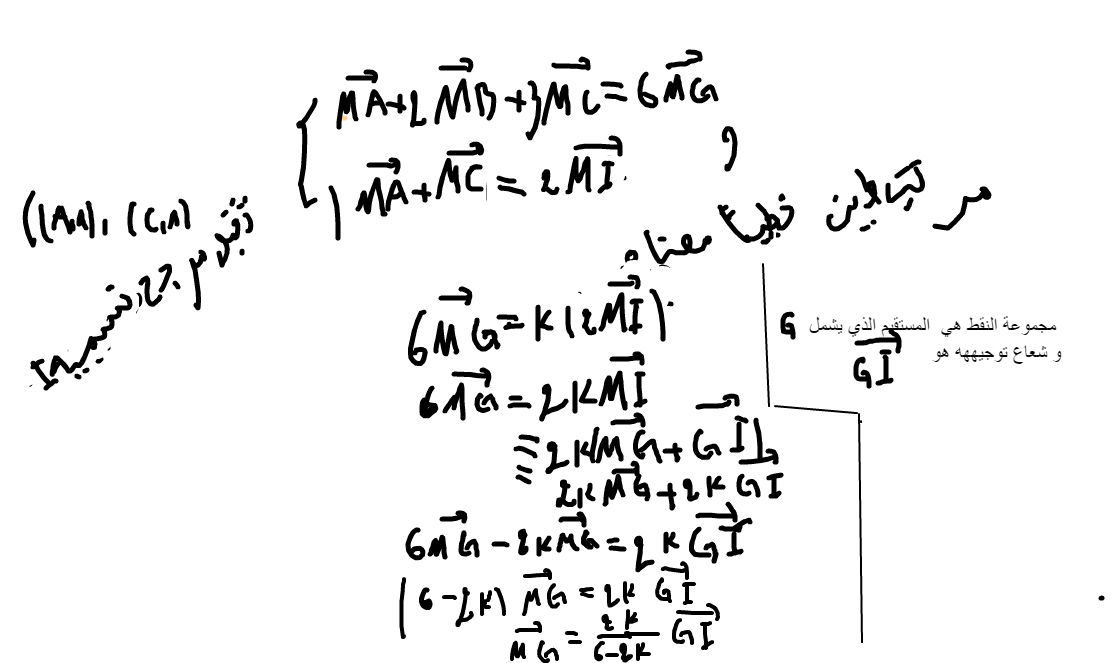 MA+2MB+3MC=6MG
MA+MC=2MI
((A,1), (C,1)
نقبل مرجح نسميه I
و
مرتبطين خطيا معناه
6MG=K(2MI)
6MG=2KMI
=2K(MG+GI)
=2KMG+2KGI
6MG-2KMG=2KGI
(6-2K)MG=2KGI
MG=2K/6-2K GI
مجموعة النقط هي المستقيم الذي يشمل G
و شعاع توجيهه هو GI